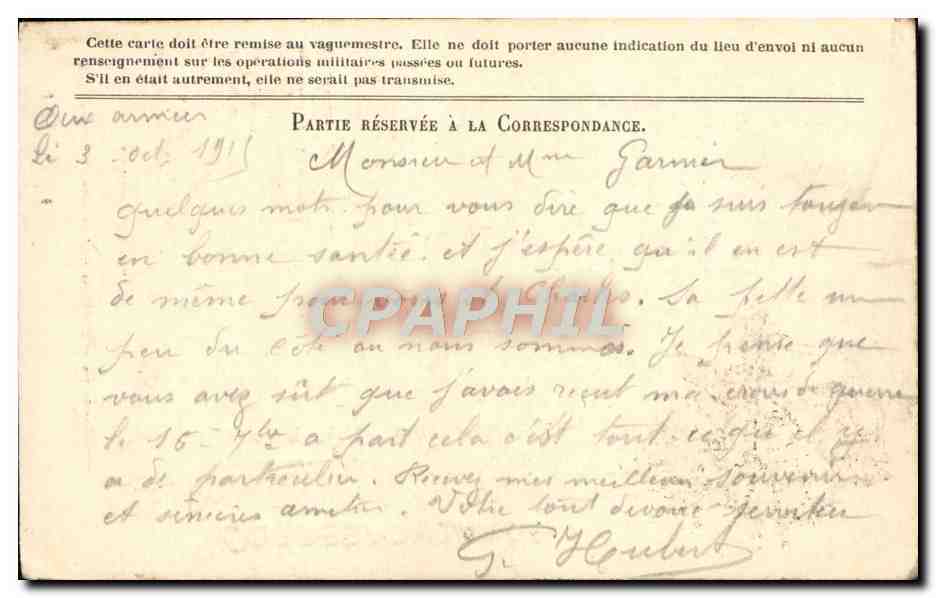 Cette carte doit être remise au vaguemestre. Elle ne doit porter aucune indication du lieu d'envoi ni aucun
renseignement sur les opérations militaires passées ou futures.
S'il en était autrement, elle ne serait pas transmise.
PARTIE RÉSERVÉE À LA CORRESPONDANCE.
Aux armées
Le 3 Oct 1915
Monsieur et Mme Garnier
quelques mots pour vous dire que je suis toujours
en bonne santé et j'espère qu'il en est
de même pour vous et Charles. Sa pette un
peu du côté ou nous sommes. Je pense que
vous avez sût que j'avais reçut ma croix de guerre
le 16 7bre a part cela c'est tout ce qu'il y
a de particulier. Recevez mes meilleurs souvenirs
et sincères amitiés. Votre tout dévoué serviteur
G. Houbert
CPAPHIL